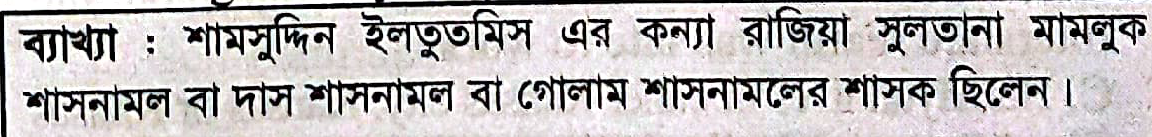 ব্যাখ্যা : শামসুদ্দিন ইলতুতমিস এর কন্যা রাজিয়া সুলতানা মামলুক
শাসনামল বা দাস শাসনামল বা গোলাম শাসনামলের শাসক ছিলেন।